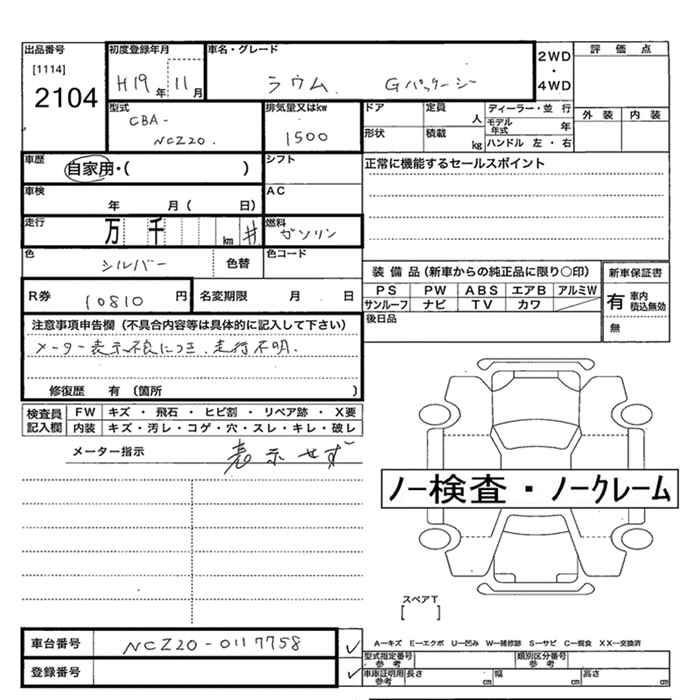 出品番号 初度登録年月 車名・グレード 2WD・4WD 評価点
[1114]
2104 H19年 11月 ラウム Gパッケージ
外装 内装
型式 排気量又はkw ドア 定員 人 ディーラー・並行
CBA- 1500 モデル年式 年
NCZ20. 形状 積載 kg ハンドル 左・右
車歴 自家用・( ) シフト 正常に機能するセールスポイント
車検 年 月( 日) AC
走行 万 千 km # 燃料 ガソリン
色 シルバー 色替 色コード
装備品(新車からの純正品に限り○印) 新車保証書
PS PW ABS エアB アルミW 有 車内積込無効
サンルーフ ナビ TV カワ
R券 10810円 名変期限 月 日 後日品 無
注意事項申告欄(不具合内容等は具体的に記入して下さい)
メーター表示不良につき、走行不明.
修復歴 有(箇所 )
検査員記入欄 FW キズ・飛石・ヒビ割・リペア跡・X要
内装 キズ・汚レ・コゲ・穴・スレ・キレ・破レ
メーター指示 表示せず
ノー検査・ノークレーム
スペアT
[ ]
車台番号 NCZ20-0117758 ✓
A-キズ E-エクボ U-凹み W-補修跡 S-サビ C-腐食 XX-交換済
型式指定番号参考 類別区分番号参考
登録番号 ✓ 車庫証明用参考 長さ cm 幅 cm 高さ cm